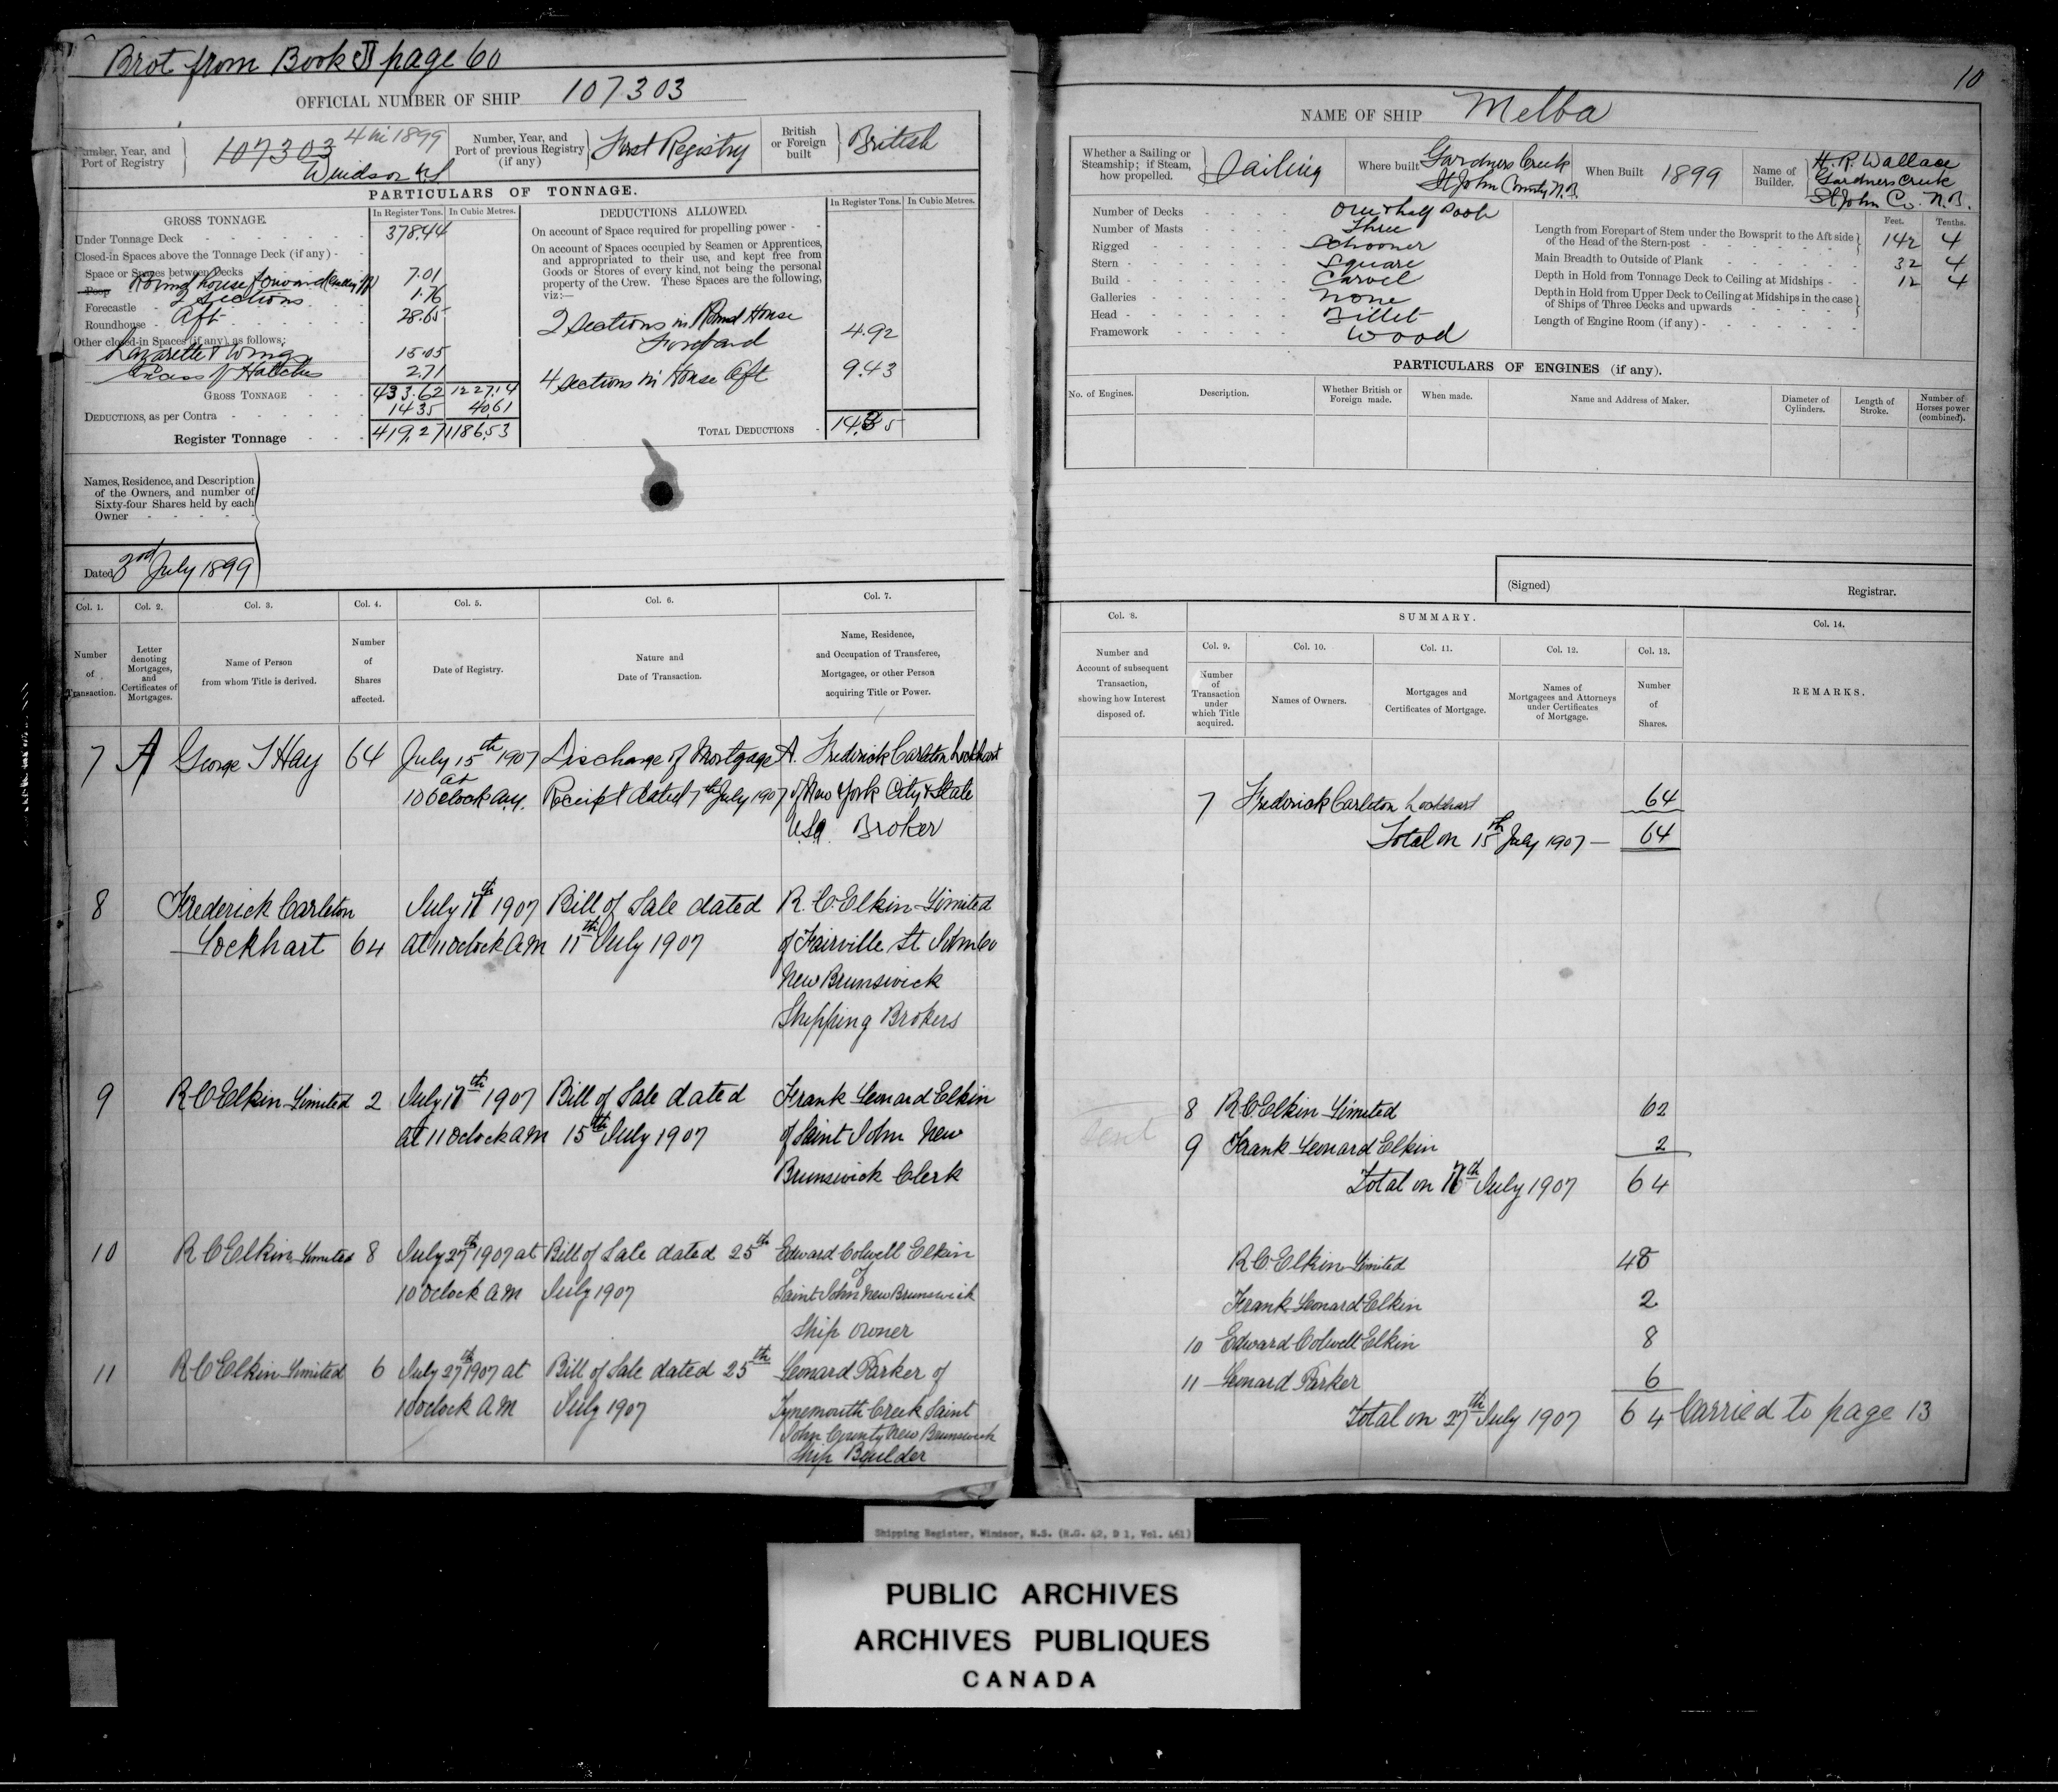 Brot from Book J page 60
OFFICIAL NUMBER OF SHIP 107303
Number, Year, and Port of Registry
107303 4 in 1899
Windsor N.S
Number, Year, and Port of previous Registry (if any)
First Registry
British or Foreign built
British
PARTICULARS OF TONNAGE.
GROSS TONNAGE.
In Register Tons. In Cubic Metres.
Under Tonnage Deck 378.44
Closed-in Spaces above the Tonnage Deck (if any)
Space or Spaces between Decks
Poop Round house forward 7.01
2 Sections 1.76
Forecastle
Roundhouse Aft 28.65
Other closed-in Spaces (if any) as follows:
Lazarette & Wings 15.05
Excess of Hatches 2.71
GROSS TONNAGE 433.62 1227.14
DEDUCTIONS, as per Contra 14.35 40.61
Register Tonnage 419.27 1186.53
DEDUCTIONS ALLOWED.
In Register Tons. In Cubic Metres.
On account of Space required for propelling power
On account of Spaces occupied by Seamen or Apprentices, and appropriated to their use, and kept free from Goods or Stores of every kind, not being the personal property of the Crew. These Spaces are the following, viz:—
2 Sections in Round House
Forward 4.92
4 Sections in House Aft 9.43
TOTAL DEDUCTIONS 14.35
Names, Residence, and Description of the Owners, and number of Sixty-four Shares held by each Owner
Dated 3rd July 1899
Col. 1. Col. 2. Col. 3. Col. 4. Col. 5. Col. 6. Col. 7.
Number of Transaction.
Letter denoting Mortgages, and Certificates of Mortgages.
Name of Person from whom Title is derived.
Number of Shares affected.
Date of Registry.
Nature and Date of Transaction.
Name, Residence, and Occupation of Transferee, Mortgagee, or other Person acquiring Title or Power.
7 A George T Hay 64 July 15th 1907 Discharge of Mortgage A. Frederick Carleton Lockhart
at 10 Oclock a.m. Receipt dated 7th July 1907 of New York City & State
USA Broker
8 Frederick Carleton July 17th 1907 Bill of Sale dated R. C. Elkin Limited
Lockhart 64 at 11 Oclock AM 11th July 1907 of Fairville St John Co
New Brunswick
Shipping Brokers
9 R C Elkin Limited 2 July 17th 1907 Bill of Sale dated Frank Leonard Elkin
at 11 Oclock AM 15th July 1907 of Saint John New
Brunswick Clerk
10 R C Elkin Limited 8 July 27th 1907 at Bill of Sale dated 25th Edward Colwell Elkin
10 Oclock AM July 1907 of Saint John New Brunswick
Ship Owner
11 R C Elkin Limited 6 July 27th 1907 at Bill of Sale dated 25th Leonard Parker of
10 oclock AM July 1907 Tynemouth Creek Saint
John County New Brunswick
Ship Builder
10
NAME OF SHIP Melba
Whether a Sailing or Steamship; if Steam, how propelled.
Sailing
Where built
Gardners Creek
St John County N.B.
When Built 1899
Name of Builder.
H. R. Wallace
Gardners Creek
St John Co. N.B.
Number of Decks One & half Poop
Number of Masts Three
Rigged Schooner
Stern Square
Build Carvel
Galleries None
Head Billet
Framework Wood
Feet. Tenths.
Length from Forepart of Stem under the Bowsprit to the Aft side of the Head of the Stern-post 142 4
Main Breadth to Outside of Plank 32 4
Depth in Hold from Tonnage Deck to Ceiling at Midships 12 4
Depth in Hold from Upper Deck to Ceiling at Midships in the case of Ships of Three Decks and upwards
Length of Engine Room (if any)
PARTICULARS OF ENGINES (if any).
No. of Engines.
Description.
Whether British or Foreign made.
When made.
Name and Address of Maker.
Diameter of Cylinders.
Length of Stroke.
Number of Horses power (combined).
(Signed) Registrar.
Col. 8.
SUMMARY.
Col. 14.
Number and Account of subsequent Transaction, showing how Interest disposed of.
Col. 9. Col. 10. Col. 11. Col. 12. Col. 13.
Number of Transaction under which Title acquired.
Names of Owners.
Mortgages and Certificates of Mortgage.
Names of Mortgagees and Attorneys under Certificates of Mortgage.
Number of Shares.
REMARKS.
7 Frederick Carleton Lockhart 64
Total on 15th July 1907 — 64
8 R C Elkin Limited 62
9 Frank Leonard Elkin 2
Total on 17th July 1907 64
R C Elkin Limited 48
Frank Leonard Elkin 2
10 Edward Colwell Elkin 8
11 Leonard Parker 6
Total on 27th July 1907 64 Carried to page 13
Shipping Register, Windsor, N.S. (R.G. 42, D 1, Vol. 461)
PUBLIC ARCHIVES
ARCHIVES PUBLIQUES
CANADA